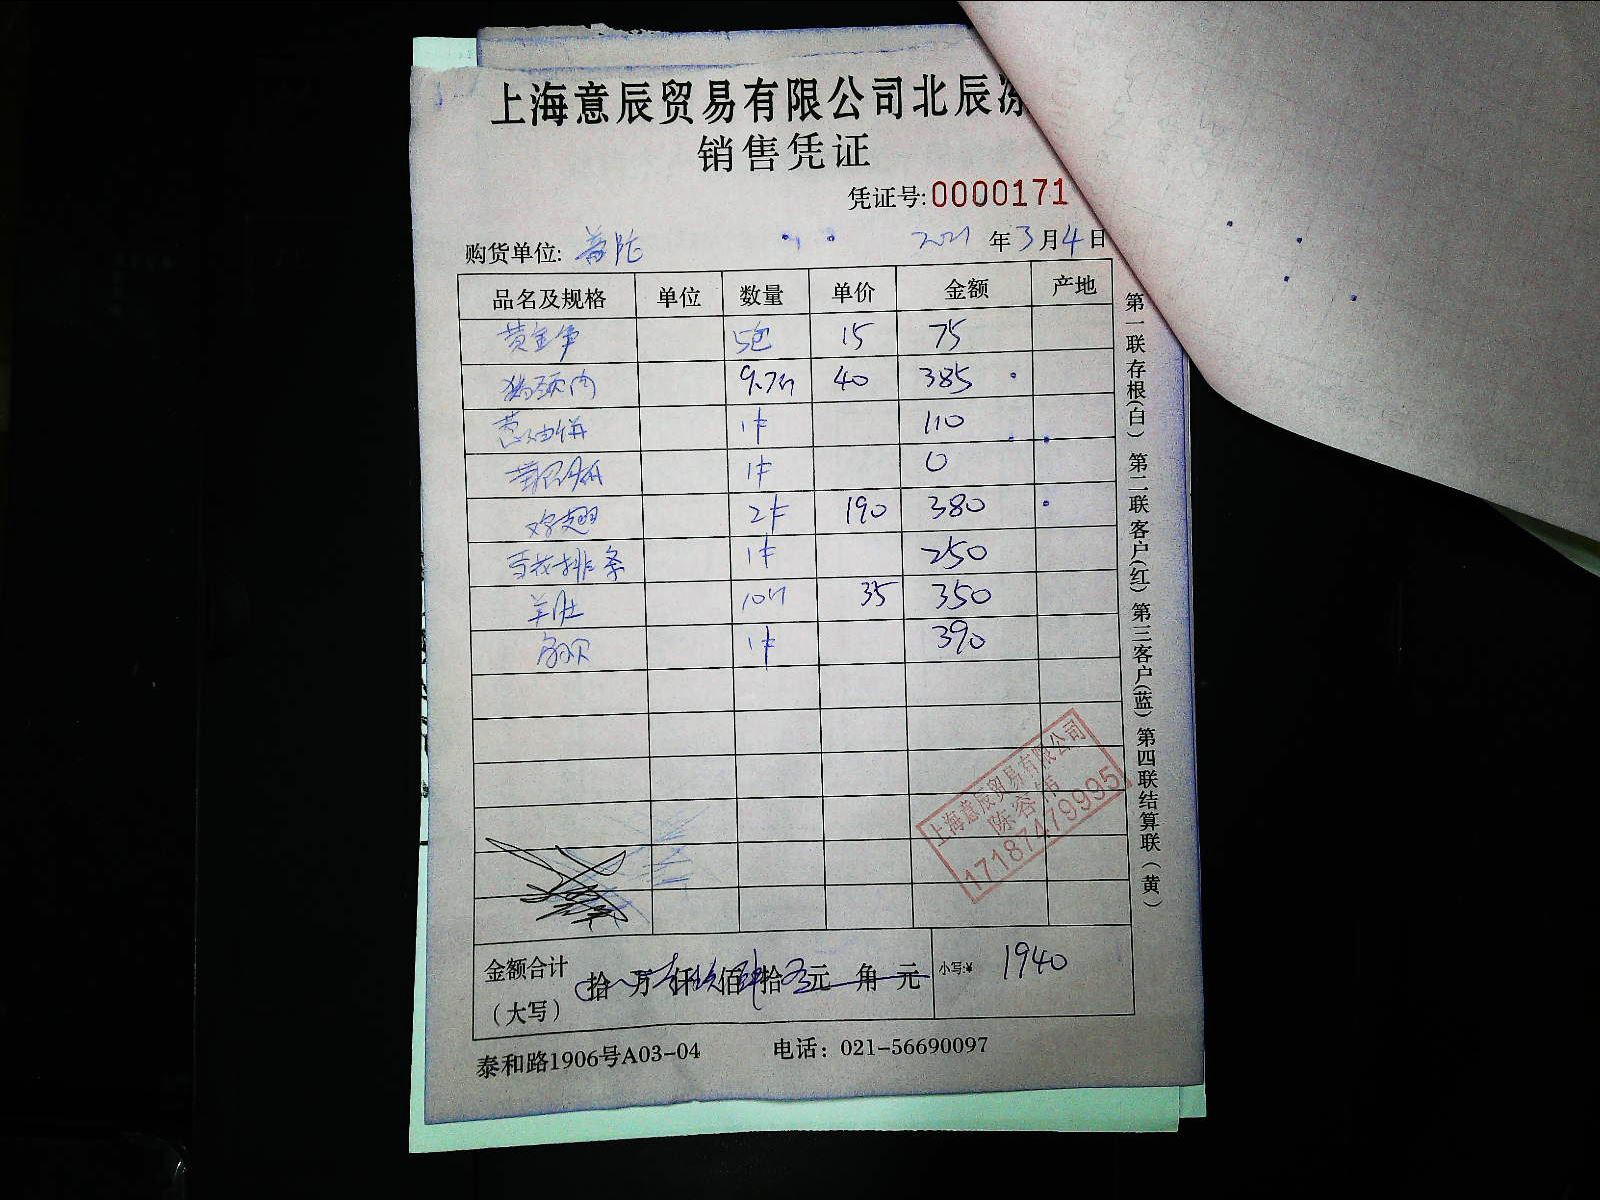 上海意辰贸易有限公司北辰冻
销售凭证
凭证号:0000171
购货单位: 普陀 2021 年 3 月 4 日
品名及规格 单位 数量 单价 金额 产地
黄金 5包 15 75
猪颈肉 9.7斤 40 385
葱油饼 1件 110
1件 0
鸡翅 2件 190 380
雪花排条 1件 250
羊肚 10斤 35 350
扇贝 1件 390
上海意辰贸易有限公司
陈容伟
17187479995
金额合计
(大写)
拾 万 仟 佰 拾 元 角 元
小写:¥ 1940
泰和路1906号A03-04 电话：021-56690097
第一联存根(白) 第二联客户(红) 第三客户(蓝) 第四联结算联(黄)